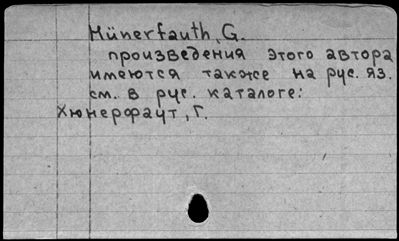 Hünerfauth, G.
произведения этого автора
имеются также на рус. яз.
см. в рус. каталоге:
Хюнерфаут, Г.